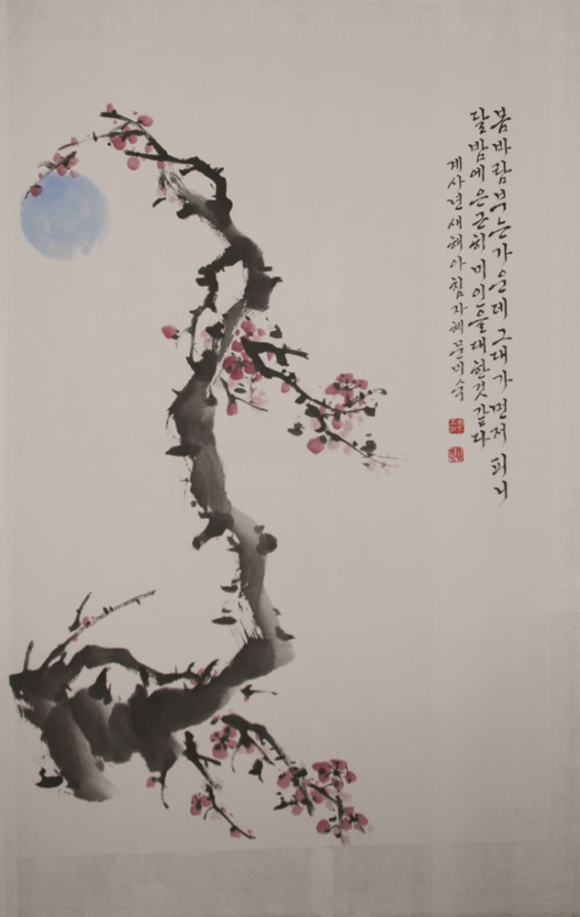 봄바람 부는 가운데 그대가 먼저 피니
달밤에 은근히 미인을 대한것 같다
계사년 새해 아침 자혜 문미숙